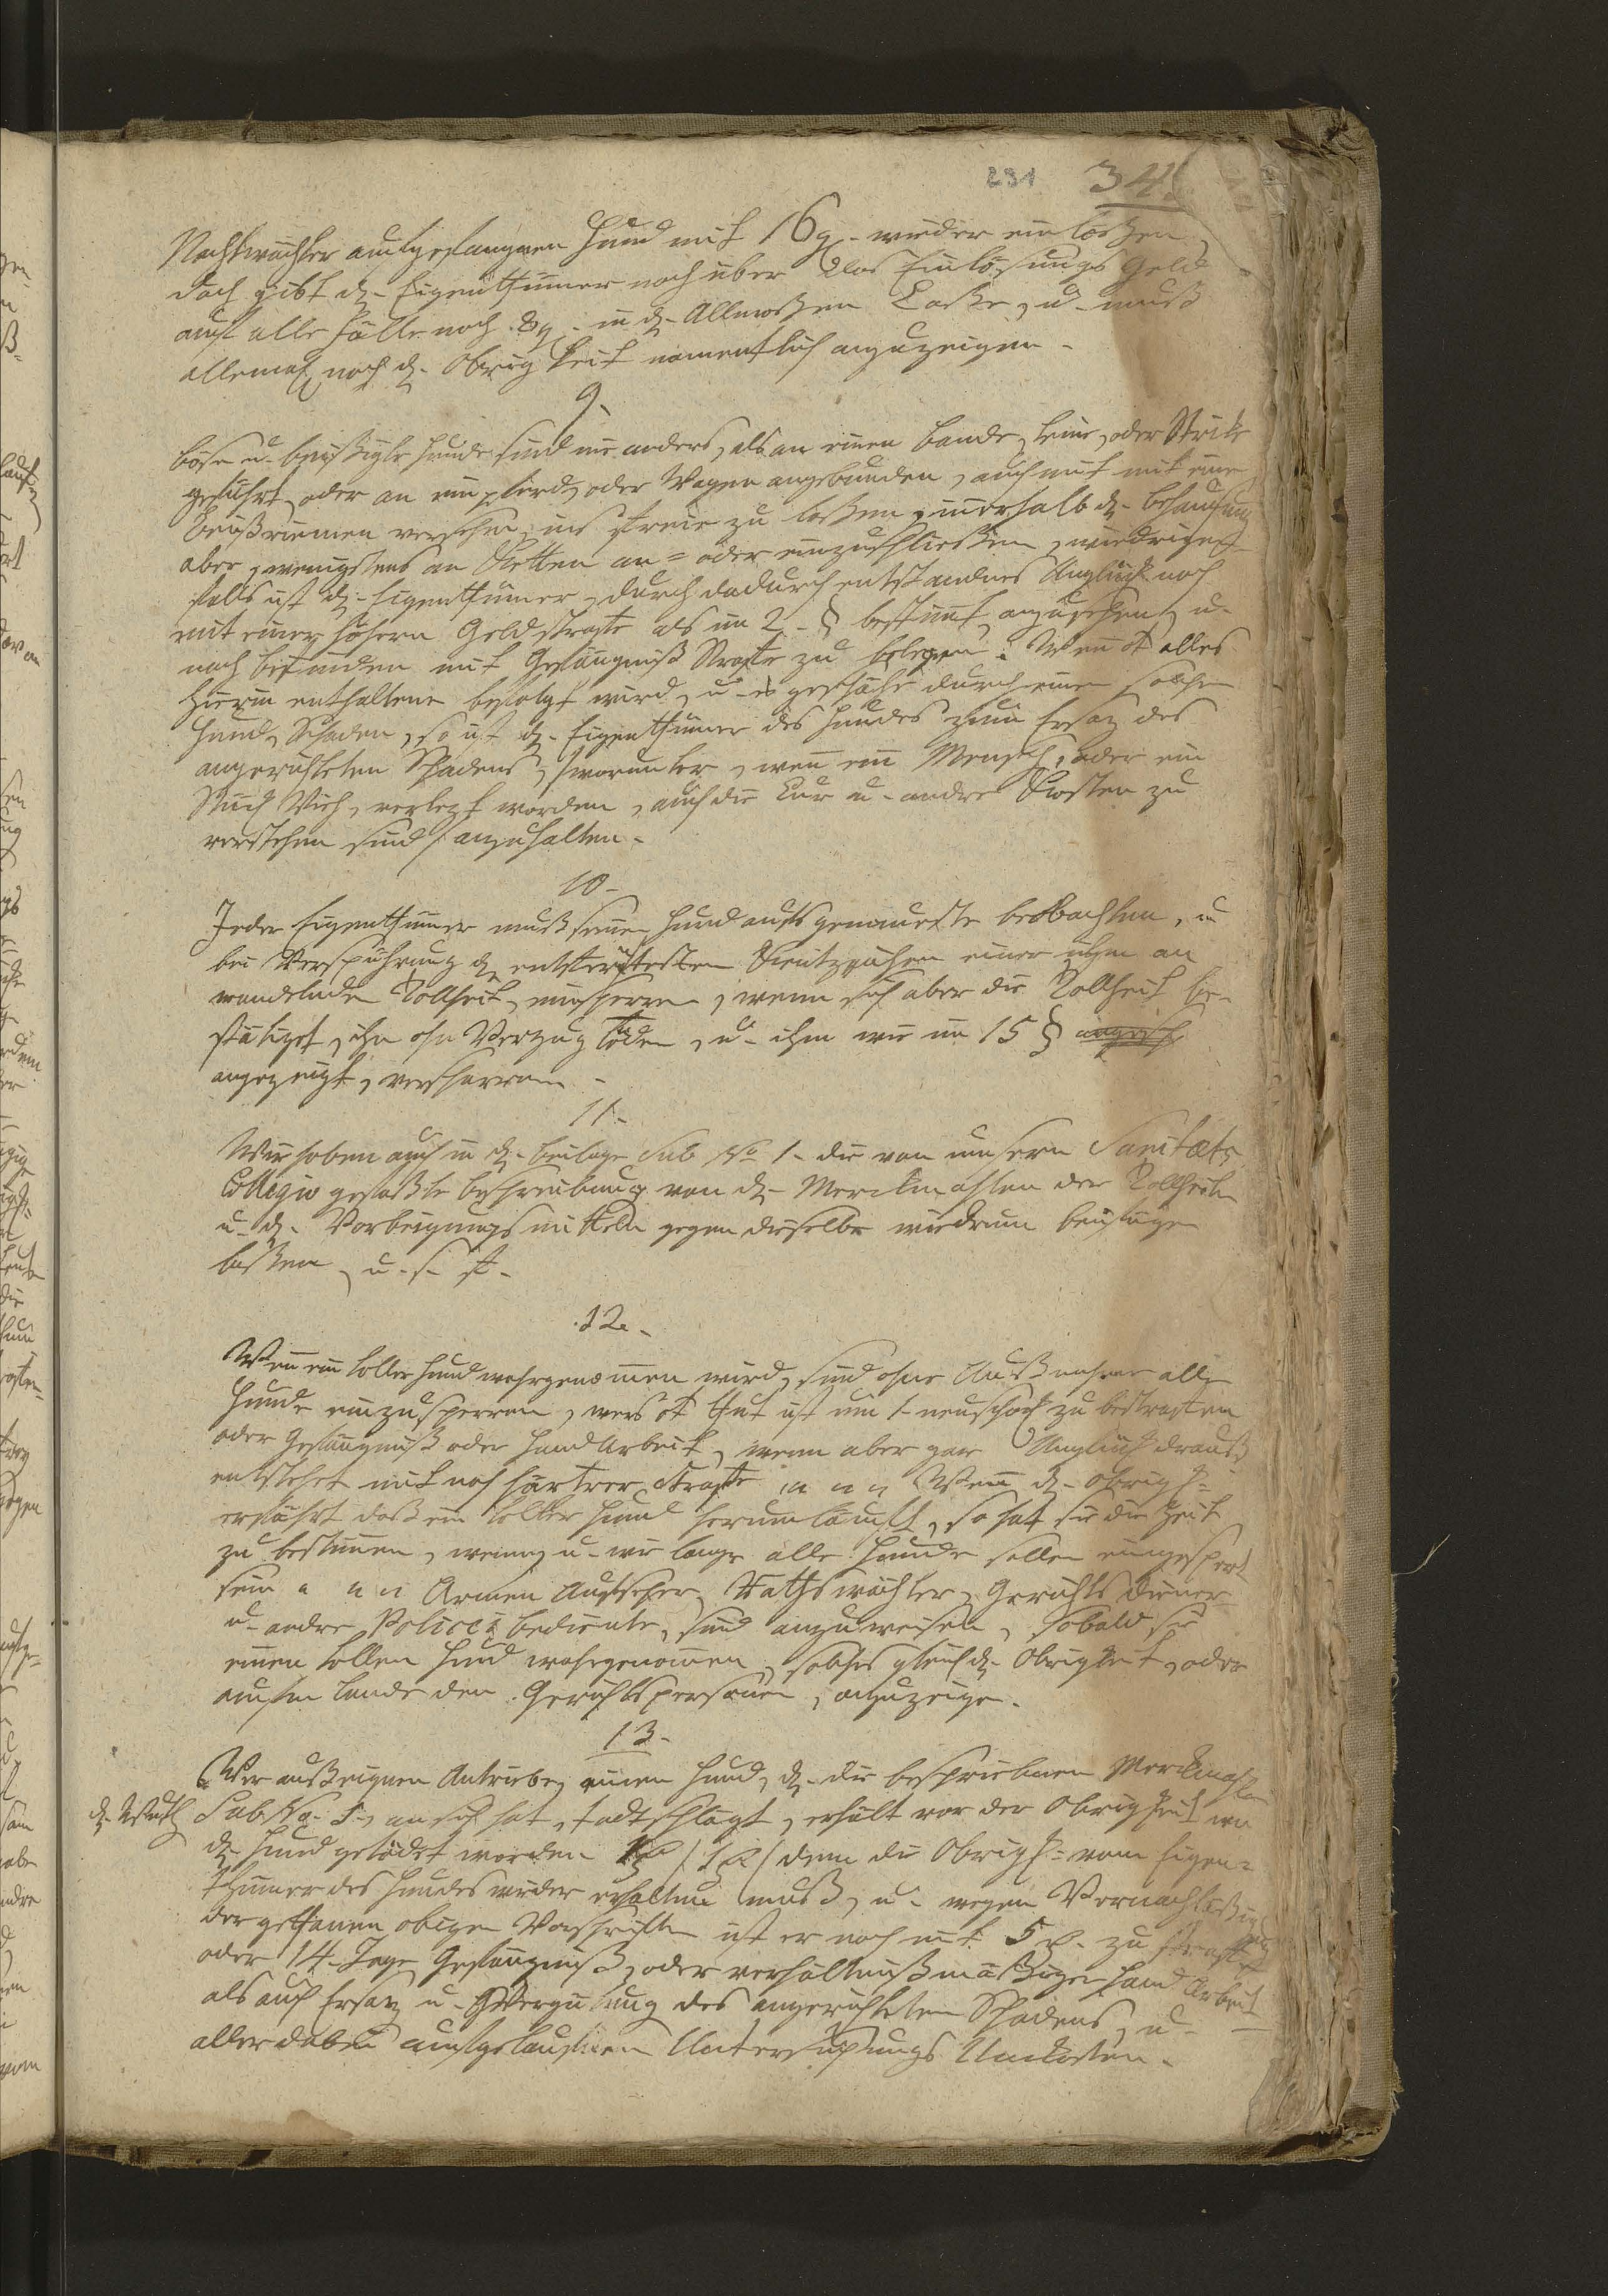 291 341
Nachtwächter aufgefangnen Hund mit 16 g. wieder einlößen
doch gibt d. Eigenthümer noch über das Einlösungs Geld
auf alle Fälle noch 8 g. in d. Allmoßen Casse, u. muß
allemal noch d. Obrigkeit namentlich anzuzeigen.
9.
böse u. beißigte Hunde sind nie anders, als an einen Bande, Leine, oder Strike
geführt, oder an ein Pferd, oder Wagen angebunden, auch mit
Beißriemen versehen, ins Freie zu laßen, innerhalb d. Behausung
aber, wenigstens an Ketten an= oder einzuschließen, wiedrigen
falls ist d. Eigenthümer, durch dadurch entstandnes Unglück noch
mit einer höhern Geldstraffe als im 2. § bestimt anzusehen, u.
nach befinden mit Gefängniß Straffe zu belegen. Wen alles
hierin enthaltene befolgt wird, u. es geschähe durch einen solchen
Hund, Schaden, so ist d. Eigenthümer des Hundes zum Ersaz des
angerichteten Schadens, /worunter, wen ein Mensch, oder ein
Stück Vieh, verlezt worden, auch die Cur u. andre Kosten zu
verstehen sind/ anzuhalten.
10.
Jeder Eigenthümer muß seinen Hund aufs genaueste beobachten, u
bei Verspührung d. entferntesten Kentzeichen einer ihm an
wandelnden Tollheit, einsperren, wenn sich aber die Tollheit be-
stätiget, ihn ohn Verzug töden, u. ihn wie im 15 §
angezeigt, verscharren.
11.
Wir haben auch in d. Beilage Sub No 1. die von unsern Sanitæts
Collegio gefaßte beschreibung von d. Merckmahlen der Tollheit
u. d. Vorbeigungsmitteln gegen dieselbe wiedrum beifügen
laßen, u. s. f.
12.
Wen ein toller Hund wahrgenomen wird, sind ohne Außnahme alle
Hunde einzusperren, wers thut ist um 1. neuschock zu bestraffen
oder Gefängniß oder Handarbeit, wenn aber gar Unglück drauß
entstehet mit noch härtrer Straffe Wen d. Obrigk=
erfährt daß ein toller Hund herumläufft, so hat sie die Zeit
zu bestimen, wenn, u. wie lange alle Hunde sollen eingesperrt
sein Armen Aufseher, Rathswächter, Gerichts diener
u. andre Policei bediente, sind anzuweisen, sobald sie
einen tollen Hund wahrgenomen, solches gleich d. Obrigkeit, oder
aufm Lande den Gerichtspersonen, anzuzeigen.
13.
Wer auß eignen Antriebe, einen Hund, d. die beschriebnen Merckmahle
d. Wuth Sub No. an sich hat, todt schlägt, erhält von der Obrigkeit wo
d. Hund getödet worden dem die Obrigk= vom Eigen=
thümer des Hundes wieder erhalten muß, u. wegen Vernachläßigung
der gethanen obigen Vorschriften ist er noch mit 5 zu straffen
oder 14. Tage Gefängniß, oder verhältnißmäßiger Hand Arbeit
als auch Ersaz u. Vergütung des angerichteten Schadens, u.
aller dabei aufgelaufnen Untersuchungs Unkosten.